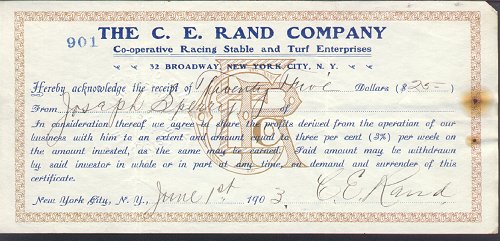 THE C. E. RAND COMPANY
901
Co-operative Racing Stable and Turf Enterprises
32 BROADWAY, NEW YORK CITY, N. Y.
I Hereby acknowledge the receipt of Twenty Five Dollars ($25-)
From Joseph of
In consideration thereof we agree to share the profits derived from the operation of our
business with him to an extent and amount equal to three per cent (3%) per week on
the amount invested, as the same may be earned. Said amount may be withdrawn
by said investor in whole or in part at any time, on demand and surrender of this
certificate.
New York City, N. Y., June 1st 1903. C. E. Rand